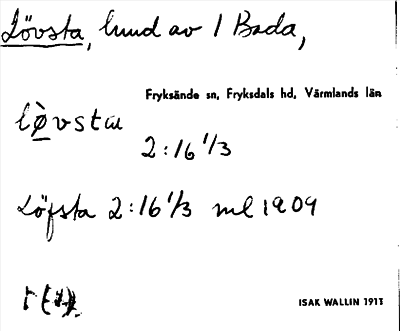 Lövsta, lund av 1 Bada,
Fryksände sn, Fryksdals hd, Värmlands län
2:16 1/3
Löfsta 2:16 1/3 ml 1909
ISAK WALLIN 1913